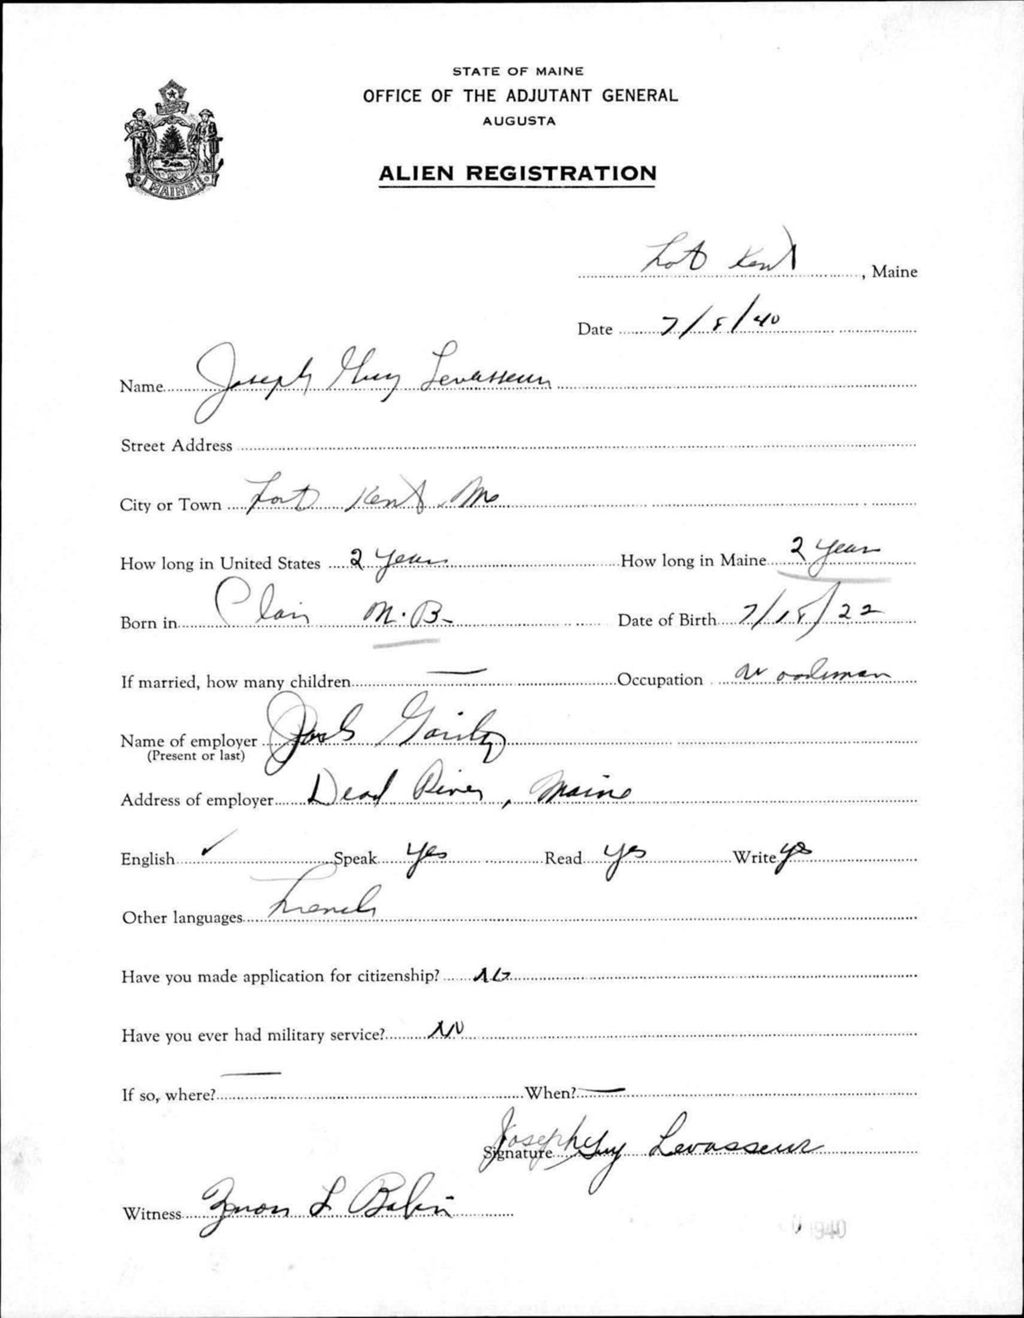 STATE OF MAINE
OFFICE OF THE ADJUTANT GENERAL
AUGUSTA
ALIEN REGISTRATION
MAINE
Fort Kent, Maine
Date 7/8/40
Name Joseph Guy Levasseur
Street Address
City or Town Fort Kent, Me
How long in United States 2 years How long in Maine 2 years
Born in Clair N.B. Date of Birth 7/18/22
If married, how many children — Occupation Woodsman
Name of employer
(Present or last)
Address of employer Dead River, Maine
English ✓ Speak Yes Read Yes Write Yes
Other languages French
Have you made application for citizenship? No
Have you ever had military service? No
If so, where? — When? —
Signature Joseph Guy Levasseur
Witness L
1940